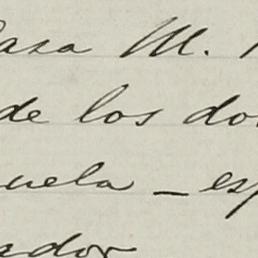 Casa M.
de los do
uela - esp
ador